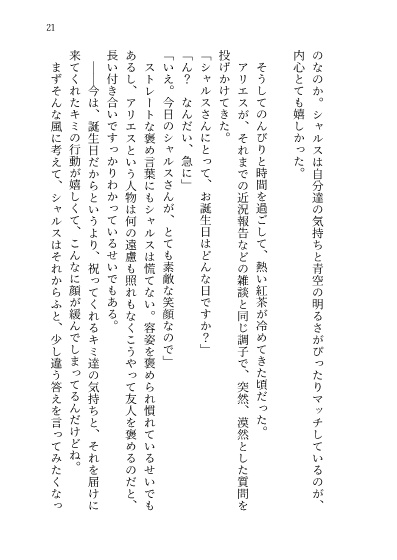 21
のなのか。シャルスは自分達の気持ちと青空の明るさがぴったりマッチしているのが、
内心とても嬉しかった。
そうしてのんびりと時間を過ごして、熱い紅茶が冷めてきた頃だった。
アリエスが、それまでの近況報告などの雑談と同じ調子で、突然、漠然とした質問を
投げかけてきた。
「シャルスさんにとって、お誕生日はどんな日ですか？」
「ん？　なんだい、急に」
「いえ。今日のシャルスさんが、とても素敵な笑顔なので」
ストレートな褒め言葉にもシャルスは慌てない。容姿を褒められ慣れているせいでも
あるし、アリエスという人物は何の遠慮も照れもなくこうやって友人を褒めるのだと、
長い付き合いですっかりわかっているせいでもある。
――今は、誕生日だからというより、祝ってくれるキミ達の気持ちと、それを届けに
来てくれたキミの行動が嬉しくて、こんなに顔が緩んでしまってるんだけどね。
まずそんな風に考えて、シャルスはそれからふと、少し違う答えを言ってみたくなっ